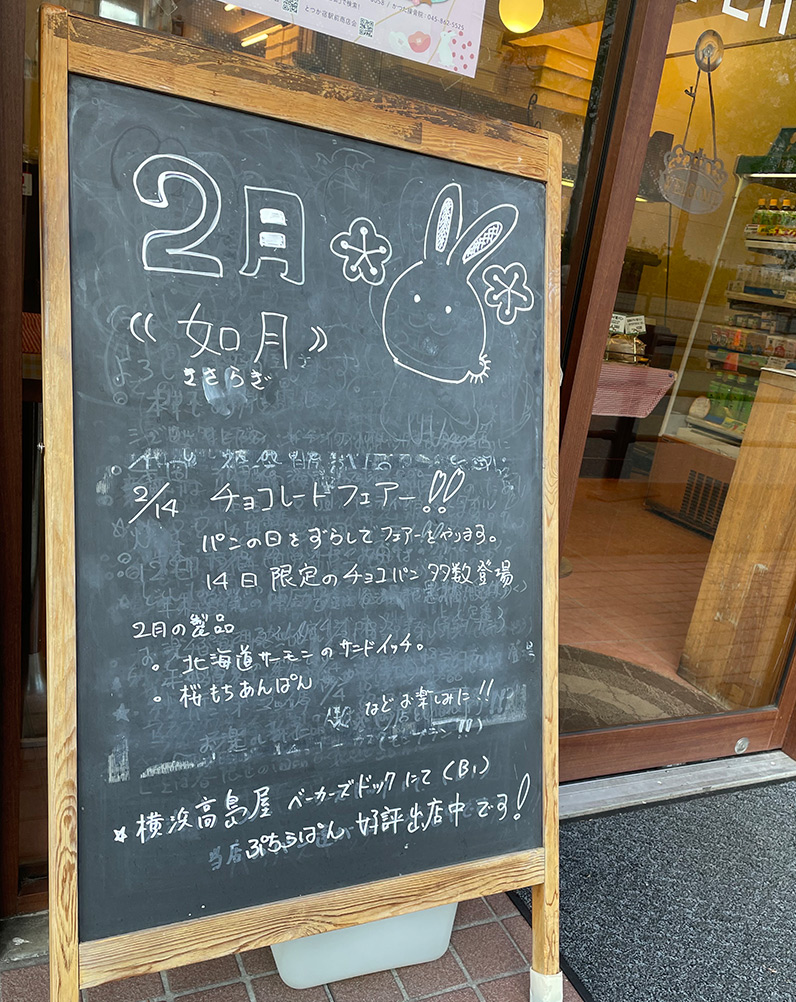 とつか宿駅前商店会
045-862-5525
2月
《如月》
きさらぎ
2/14 チョコレートフェアー!!
パンの日をずらしてフェアーをやります。
14日限定のチョコパン多数登場
2月の製品
。北海道サーモンのサンドイッチ。
。桜もちあんぱん
などお楽しみに!!
☆横浜高島屋 ベーカーズドックにて(B1)
ぷちらぱん 好評出店中です!